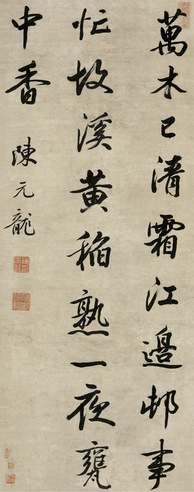 萬木已清霜江邊邨事
忙故溪黃稲熟一夜甕
中香
陳元龍